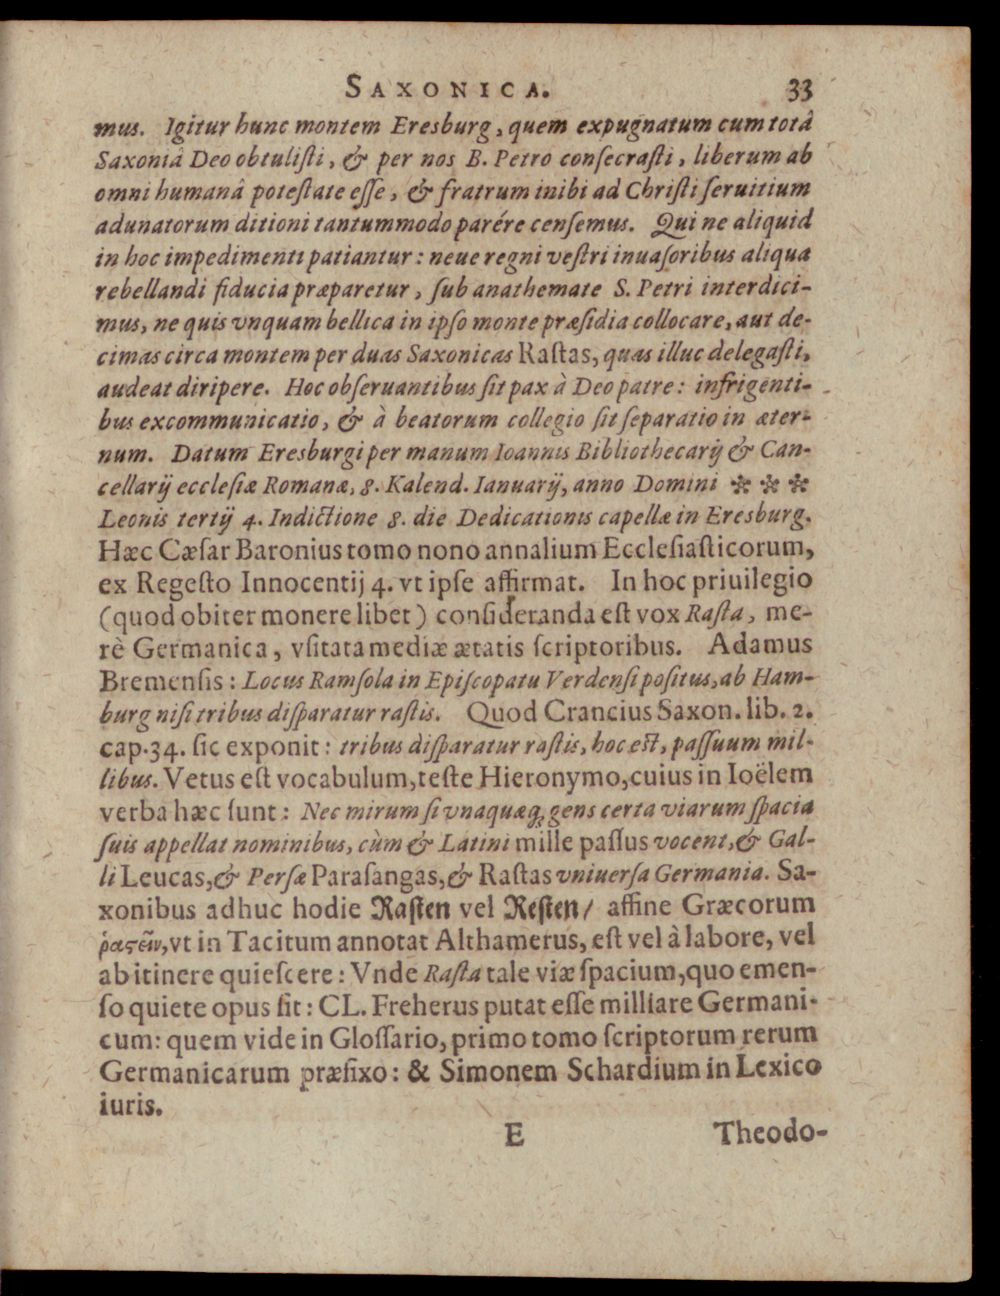 SAXONICA. 33
mus. Igitur hunc montem Eresburg, quem expugnatum cum totâ
Saxoniâ Deo obtulisti, & per nos B. Petro consecrasti, liberum ab
omni humanâ potestate esse, & fratrum inibi ad Christi seruitium
adunatorum ditioni tantummodo parére censemus. Qui ne aliquid
in hoc impedimenti patiantur: neue regni vestri inuasoribus aliqua
rebellandi fiducia præparetur, sub anathemate S. Petri interdici-
mus, ne quis vnquam bellica in ipso monte præsidia collocare, aut de-
cimas circa montem per duas Saxonicas Rastas, quas illuc delegasti,
audeat diripere. Hoc obseruantibus sit pax à Deo patre: infrigenti-
bus excommunicatio, & à beatorum collegio sit separatio in æter-
num. Datum Eresburgi per manum Ioannis Bibliothecarij & Can-
cellarij ecclesiæ Romanæ, 8. Kalend. Ianuarij, anno Domini * * *
Leonis tertij 4. Indictione 8. die Dedicationis capellæ in Eresburg.
Hæc Cæsar Baronius tomo nono annalium Ecclesiasticorum,
ex Regesto Innocentij 4. vt ipse affirmat. In hoc priuilegio
(quod obiter monere libet) consideranda est vox Rasta, me-
rè Germanica, vsitata mediæ ætatis scriptoribus. Adamus
Bremensis: Locus Ramsola in Episcopatu Verdensi positus, ab Ham-
burg nisi tribus disparatur rastis. Quod Crancius Saxon. lib. 2.
cap. 34. sic exponit: tribus disparatur rastis, hoc est, passuum mil-
libus. Vetus est vocabulum, teste Hieronymo, cuius in Ioëlem
verba hæc sunt: Nec mirum si vnaquæq; gens certa viarum spacia
suis appellat nominibus, cùm & Latini mille passus vocent, & Gal-
li Leucas, & Persæ Parasangas, & Rastas vniuersa Germania. Sa-
xonibus adhuc hodie Rasten vel Resten/ affine Græcorum
ῥαςεῖν, vt in Tacitum annotat Althamerus, est vel à labore, vel
ab itinere quiescere: Vnde Rasta tale viæ spacium, quo emen-
so quiete opus sit: CL. Freherus putat esse milliare Germani-
cum: quem vide in Glossario, primo tomo scriptorum rerum
Germanicarum præfixo: & Simonem Schardium in Lexico
iuris.
E Theodo-